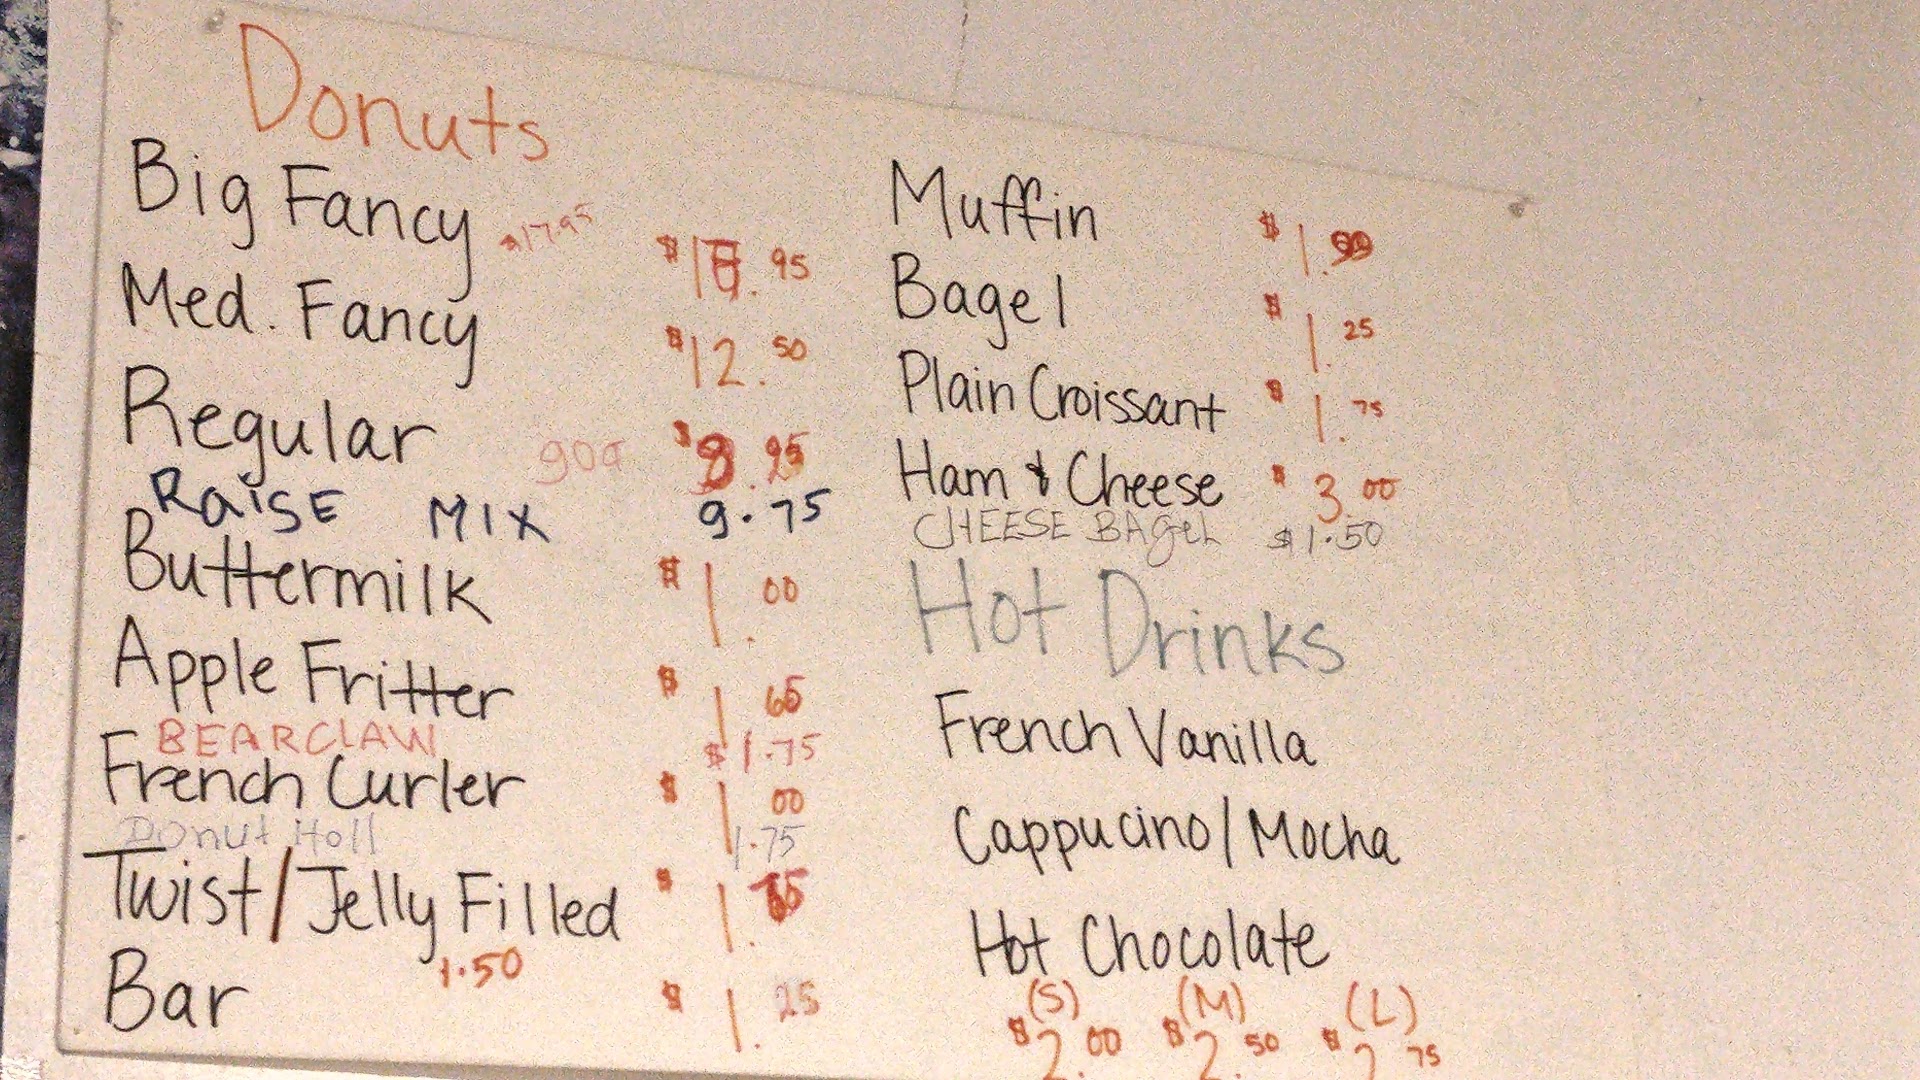 Donuts
Big Fancy $17.95 .95
Med. Fancy $12.50
Regular $ .95
RAISE MIX 9.75
Buttermilk $1.00
Apple Fritter $1.65
BEARCLAW $1.75
French Curler $1.00
Donut Holl 1.75
Twist/Jelly Filled $1.
1.50
Bar $1.25
Muffin $1.99
Bagel $1.25
Plain Croissant $1.75
Ham & Cheese $3.00
CHEESE BAGEL $1.50
Hot Drinks
French Vanilla
Cappucino/Mocha
Hot Chocolate
(S) (M) (L)
$2.00 $2.50 $2.75